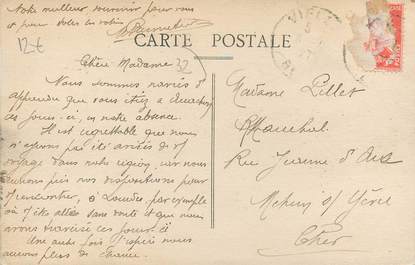 Notre meilleur souvenir pour vous
et pour votre
12 €
CARTE POSTALE
32
Chère Madame
Nous sommes navrés d'
apprendre que vous étiez à
ces jours-ci, en notre absence.
Il est regrettable que nous
n'ayons pas été avisés de
voyage dans notre région, car nous
nos dispositions pour
rencontrer, à Lourdes par exemple
où êtes allés sans doute et que nous
avons ces jours-ci
Une autre fois j'espère nous
aurons plus de chance.
Madame Pillet
Rue Jeanne d'Arc
Mehun s/ Yèvre
Cher